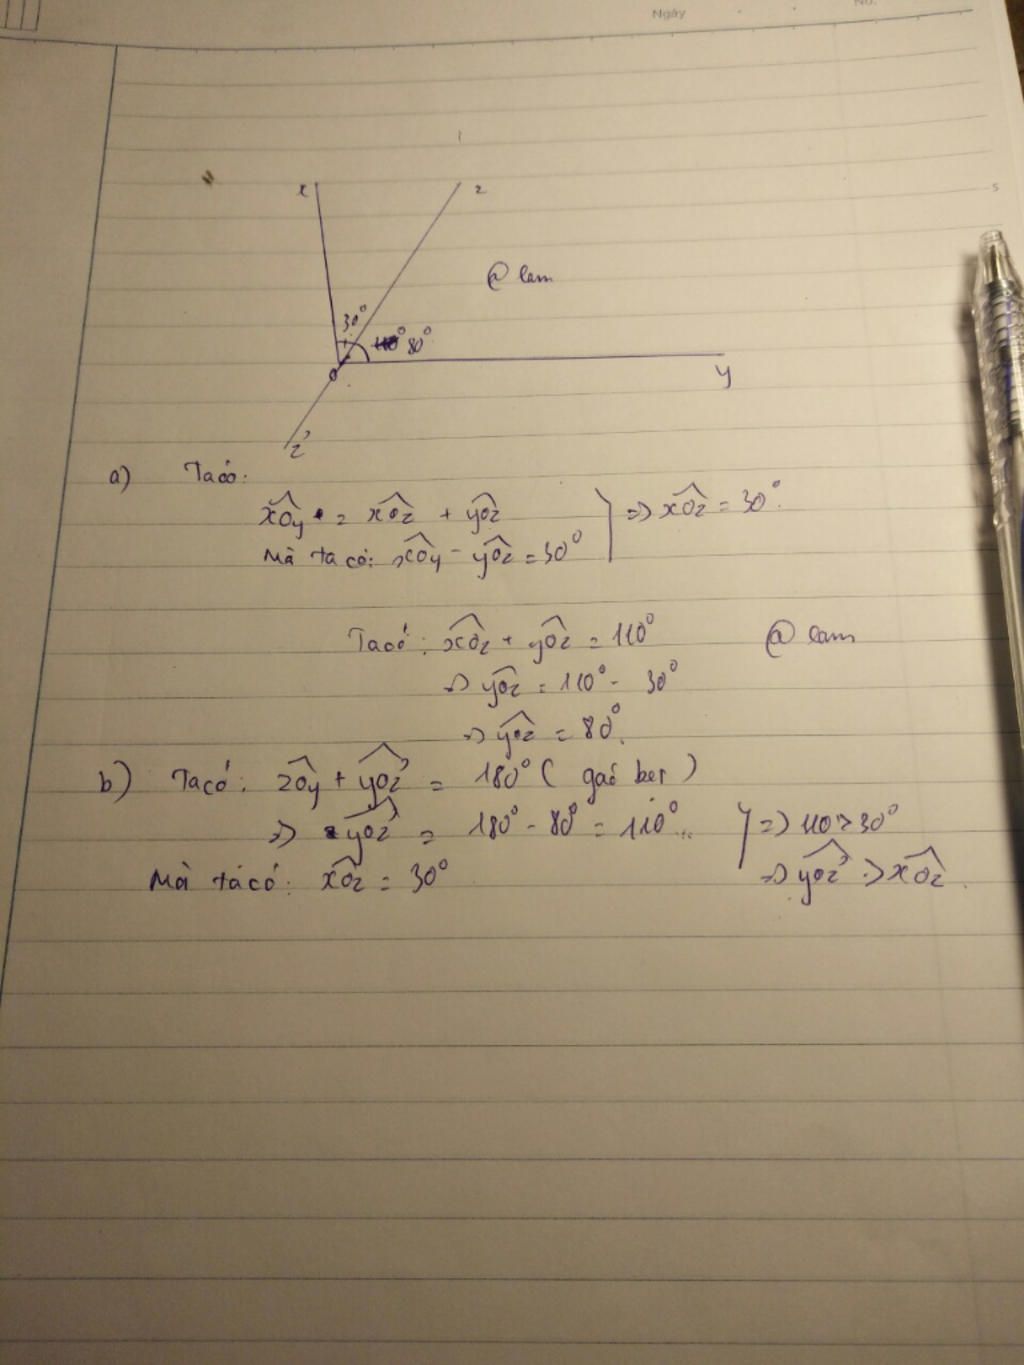 Ngày
No.
x
z
@ lam
30°
80°
O
y
z'
a) Ta có:
xOy = xOz + yOz
Mà ta có: xOy - yOz = 30°
=> xOz = 30°.
Ta có: xOz + yOz = 110°
@ lam
=> yOz = 110° - 30°
=> yOz = 80°.
b) Ta có: zOy + yOz' = 180° (
)
=> yOz' = 180° - 80° = 110°..
=> 110 > 30°
Mà ta có: xOz = 30°
=> yOz' > xOz.